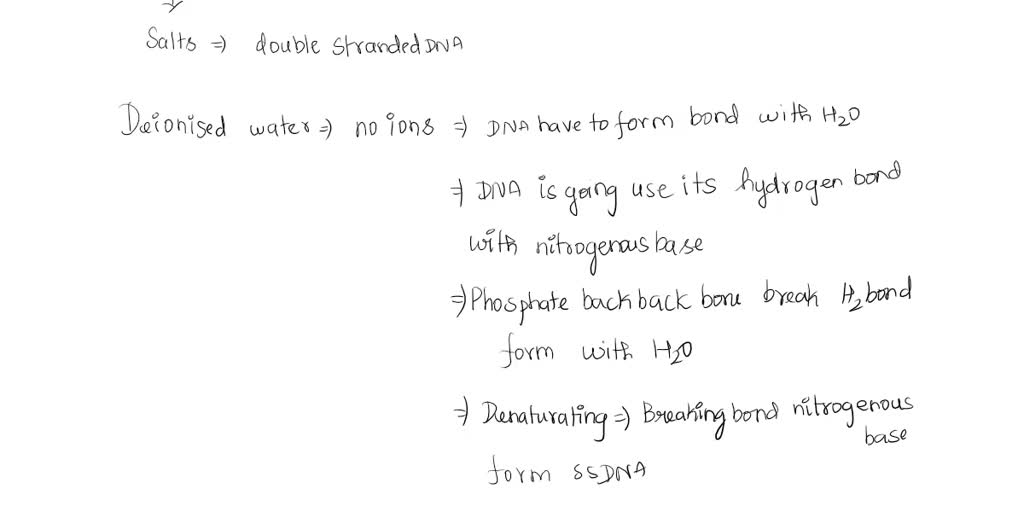 Salts ⇒ double stranded DNA
Deionised water ⇒ no ions ⇒ DNA have to form bond with H2O
⇒ DNA is going use its hydrogen bond
with nitrogenous base
⇒ Phosphate back back bone break H2 bond
form with H2O
⇒ Denaturating ⇒ Breaking bond nitrogenous
base
form SSDNA